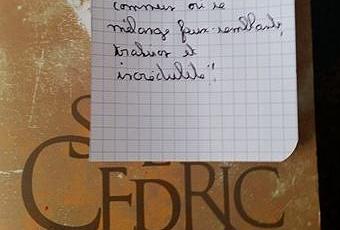 commun où se
mélange faux-semblants,
trahison et
incrédulité"!
S
CEDRIC